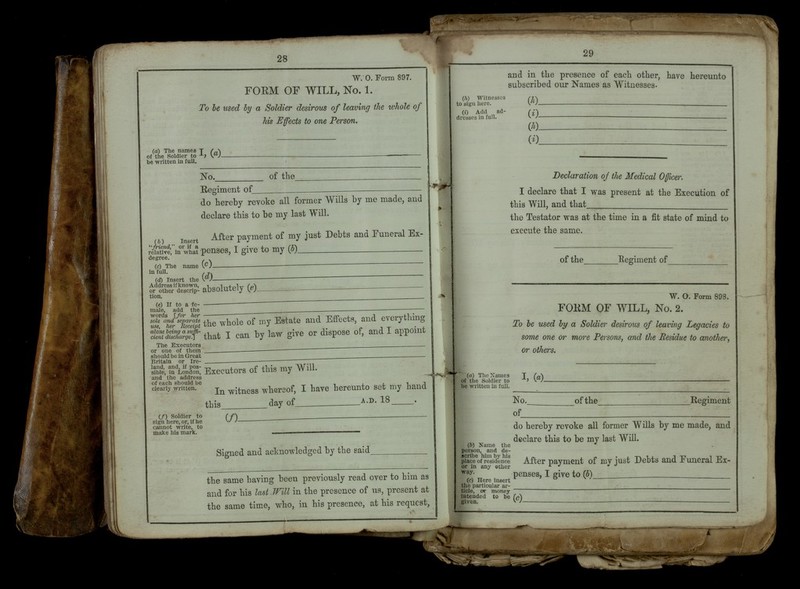 28
W. O. Form 897.
FORM OF WILL, No. 1.
To be used by a Soldier desirous of leaving the whole of
his Effects to one Person.
(a) The names
of the Soldier to
be written in full.
I, (a)
No. of the
Regiment of
do hereby revoke all former Wills by me made, and
declare this to be my last Will.
(b) Insert
"friend," or if a
relative, in what
degree.
After payment of my just Debts and Funeral Ex-
penses, I give to my (b)
(c) The name
in full.
(c)
(d) Insert the
Address if known,
or other descrip-
tion.
(d)
absolutely (e)
(e) If to a fe-
male, add the
words [for her
sole and separate
use, her Receipt
alone being a suffi-
cient discharge.]
the whole of my Estate and Effects, and everything
that I can by law give or dispose of, and I appoint
The Executors
or one of them
should be in Great
Britain or Ire-
land, and, if pos-
sible, in London,
and the address
of each should be
clearly written.
Executors of this my Will.
In witness whereof, I have hereunto set my hand
this day of A.D. 18 .
(f) Soldier to
sign here, or, if he
cannot write, to
make his mark.
(f)
Signed and acknowledged by the said
the same having been previously read over to him as
and for his last Will in the presence of us, present at
the same time, who, in his presence, at his request,
29
and in the presence of each other, have hereunto
subscribed our Names as Witnesses.
(h) Witnesses
to sign here.
(h)
(i) Add ad-
dresses in full.
(i)
(h)
(i)
Declaration of the Medical Officer.
I declare that I was present at the Execution of
this Will, and that
the Testator was at the time in a fit state of mind to
execute the same.
of the Regiment of
W. O. Form 898.
FORM OF WILL, No. 2.
To be used by a Soldier desirous of leaving Legacies to
some one or more Persons, and the Residue to another,
or others.
(a) The Names
of the Soldier to
be written in full.
I, (a)
No. of the Regiment
of
do hereby revoke all former Wills by me made, and
declare this to be my last Will.
(b) Name the
person, and de-
scribe him by his
place of residence
or in any other
way.
After payment of my just Debts and Funeral Ex-
penses, I give to (b)
(c) Here insert
the particular ar-
ticle, or money
intended to be
given.
(c)